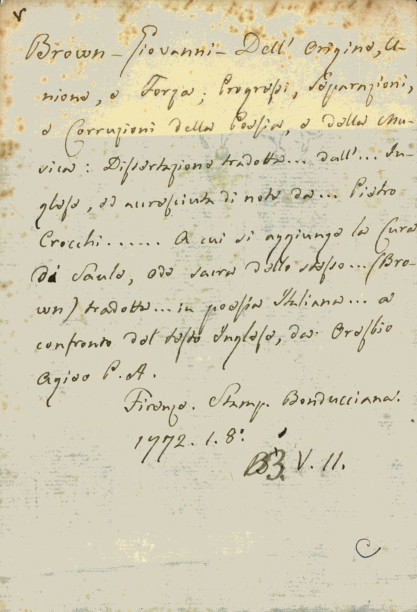 Brown – Giovanni – Dell' origine, U-
nione, e Forza; Progressi, Separazioni,
e Corruzioni della Poesia, e della Mu-
sica: Dissertazione tradotta... dall'... In-
glese, ed accresciuta di note da... Pietro
Crocchi...... A cui si aggiunge la Cura
di Saule, Ode sacra dello stesso... (Bro-
wn) tradotta... in poesia Italiana... a
confronto del testo Inglese, da Oresbio
Agieo P. A.
Firenze. Stamp. Bonducciana.
1772. 1. 8.°
B. V. 11.
C